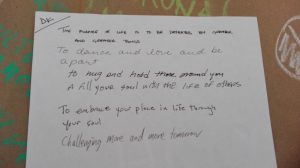 DK
THE PURPOSE OF LIFE IS TO BE DEFEATED BY GREATER
AND GREATER THINGS
To dance and love and be
apart
to hug and hold those around you
& fill your soul with the life of others
To embrace your place in life through
your soul
Challenging more and more tomorrow